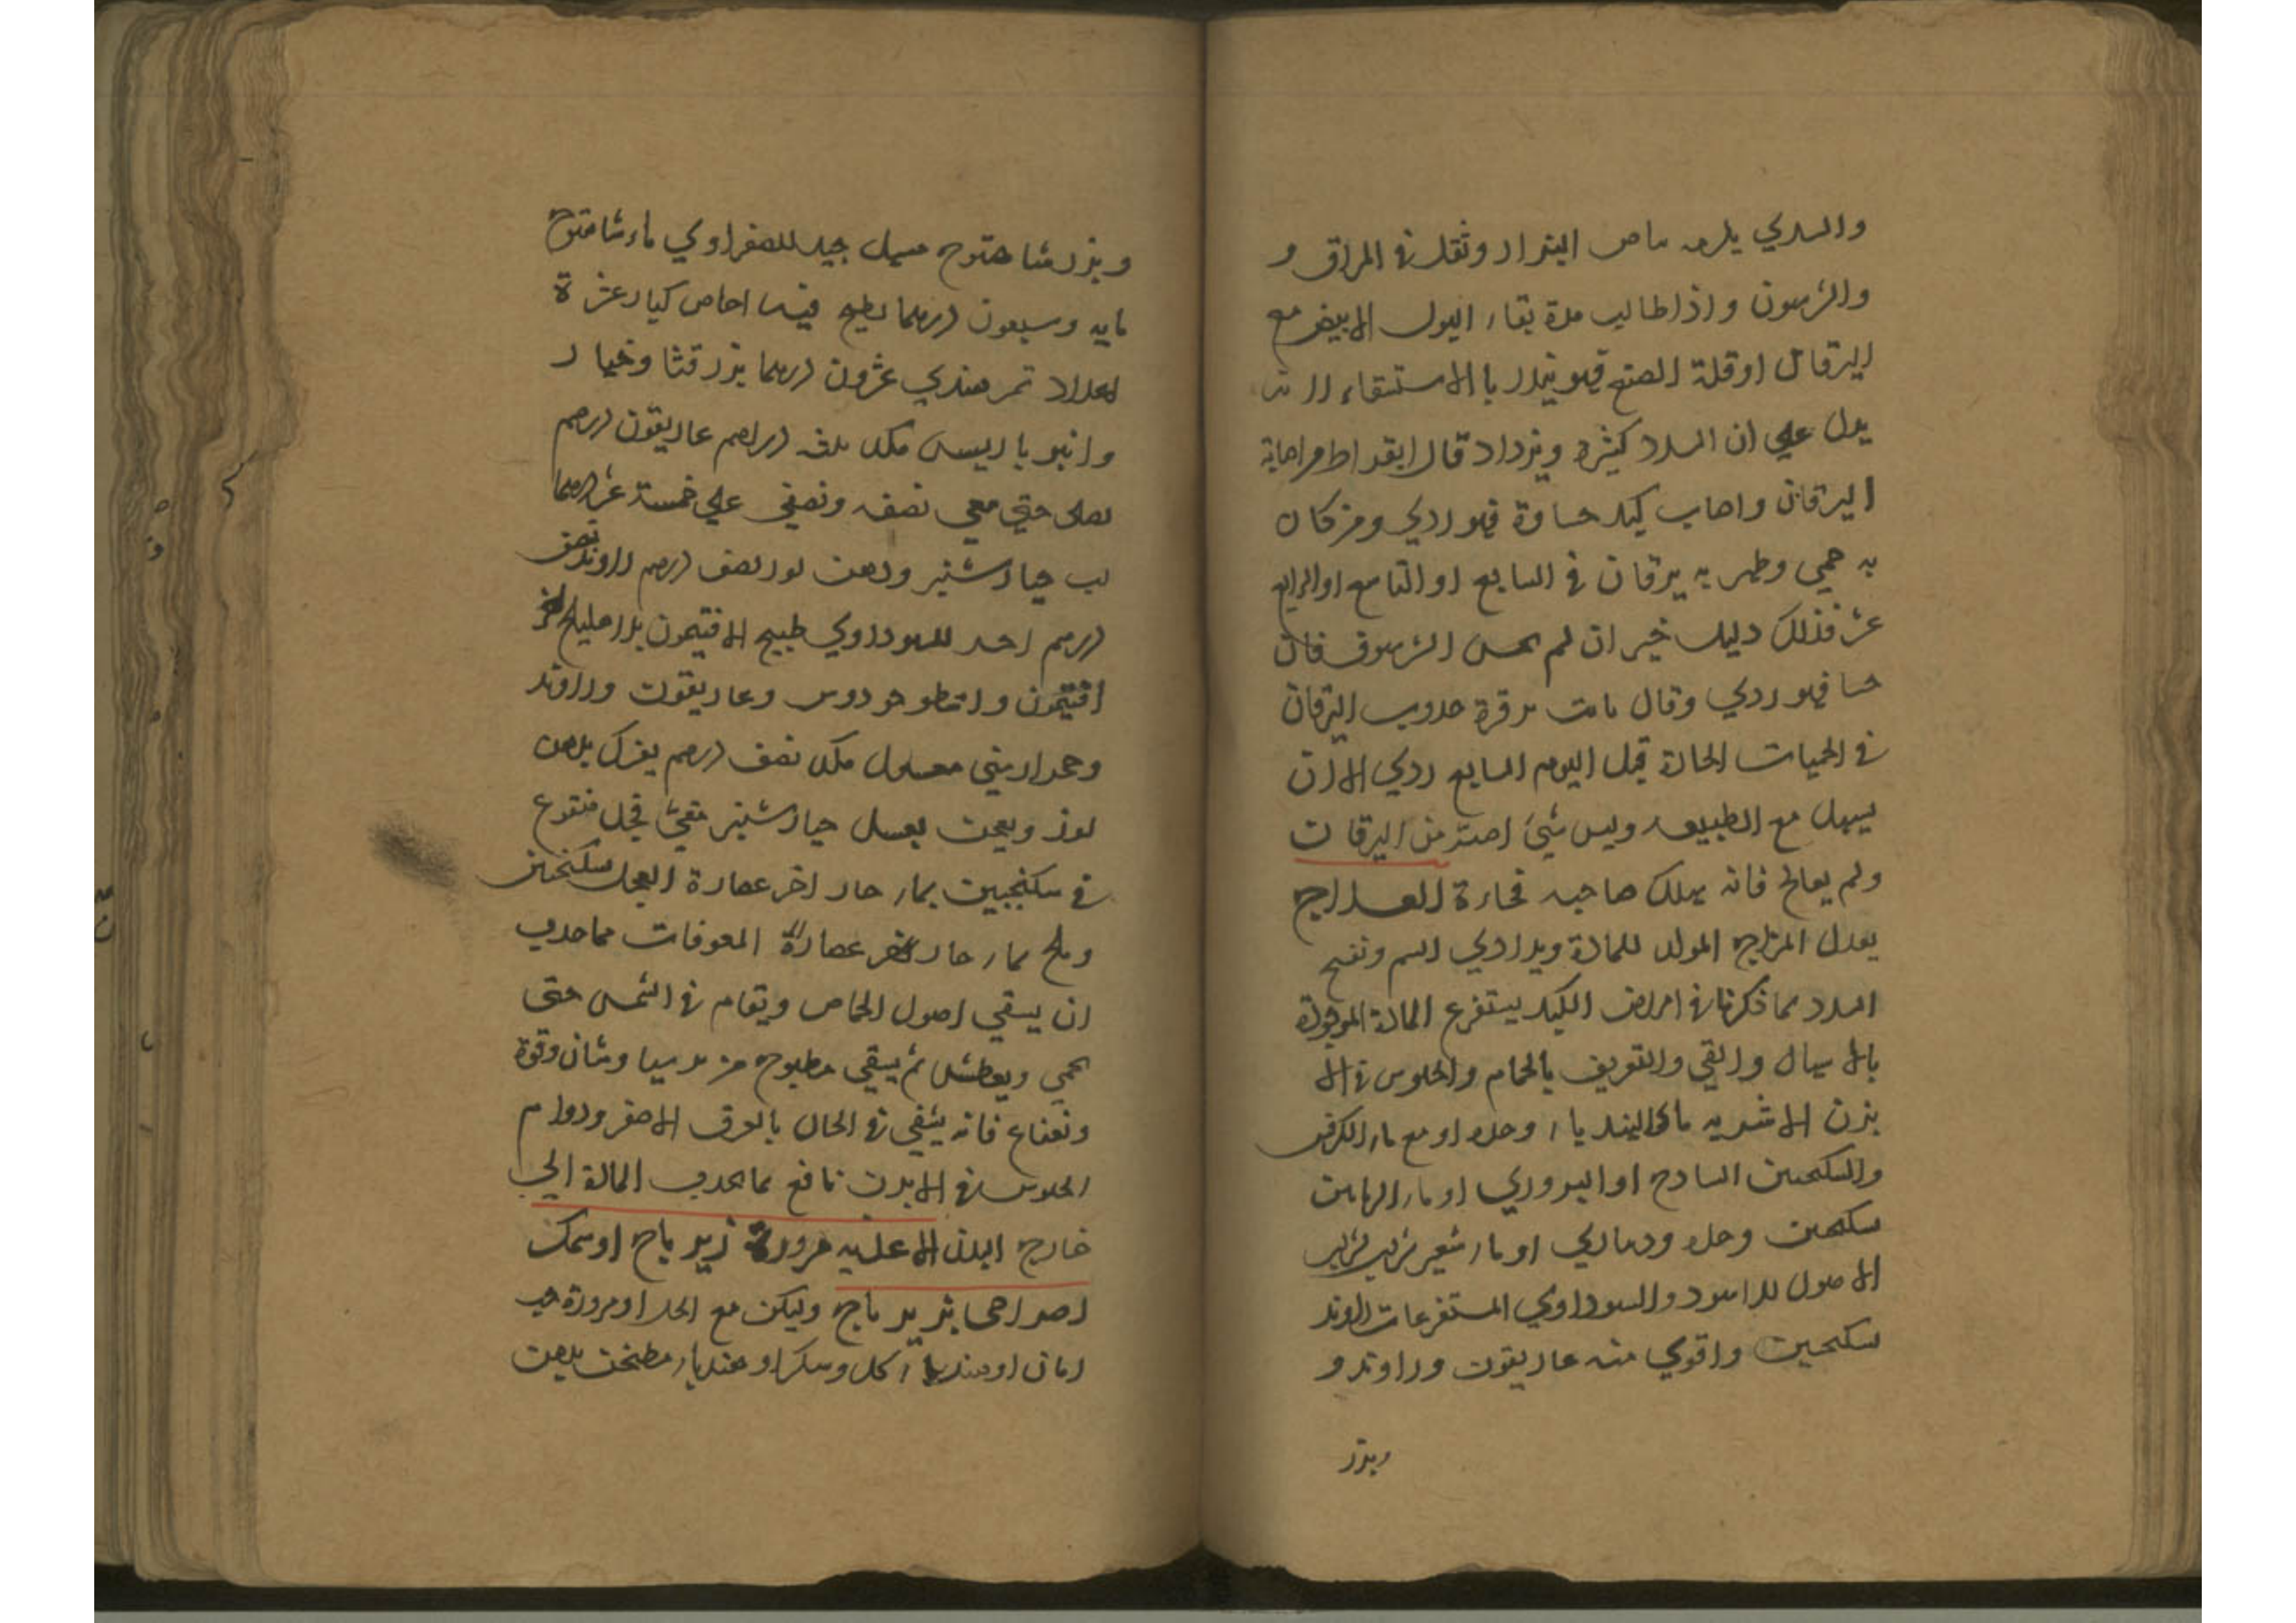 والسددي يلزمه بياض البراز وثقل في المراق و
والشرسوف واذا طالت مدة بقاء البول الابيض مع
اليرقان او قلة الصبغ فهو ينذر بالاستسقاء
يدل علي ان السدد كثيرة وتزداد قال ابقراط من اصابه
اليرقان واصاب كبده حساوة فهو ردي ومن كان
به حمي وظهر به يرقان في السابع او التاسع او الرابع
عشر فذلك دليل خير ان لم يحس الشرسوف فان
حسا فهو ردي وقال حدوث اليرقان
في الحميات الحادة قبل اليوم السابع ردي الا ان
يسهل مع الطبيعه وليس شيئ اضر من اليرقان
ولم يعالج فانه يهلك صاحبه فجاءة العلاج
يعدل المزاج المولد للمادة ويداوي السم وتفتح
السدد بما ذكرنا في امراض الكبد يستفرغ المادة الموجودة
بالاسهال والقي والتعريق بالحمام والجلوس في الا
بزن الاشربه ماء الهندباء وحده او مع ماء الكرفس
والسكنجبين السادج او البزوري او ماء الرمانين
سكنجبين وحده او ماء شعير شراب
الاصول للاسود والسوداوي المستفرغات الراوند
سكنجبين واقوي منه غاريقون وراوند و
وبزر
وبزر شاهترج مسهل جيد للصفراوي ماء شاهترج
مايه وسبعون درهما يطبخ فيه اجاص كبار عشرة
اعداد تمر هندي عشرون درهما بزر قثا وخيار
وانبرباريس مكد ثلثه دراهم غاريقون درهم
يغلى حتي يبقي نصفه ويصفي علي خمسة عشر درهما
لب خيار شنبر ودهن لوز نصف درهم راوند نصف
درهم اخر للسوداوي طبيخ الافتيمون
افتيمون واسطوخودوس وغاريقون وراوند
وحجر ارمني مغسول مكد نصف درهم يفرك بدهن
لوز ويعجن بعسل خيار شنبر مقيئ فجل منقوع
في سكنجبين بماء حار اخر عصارة الفجل سكنجبين
وملح بماء حار اخر عصارة المعرقات مما جرب
ان يسقي اصول الحماض ويقام في الشمس حتى
يحمي ويعطش ثم يسقي مطبوخ من وفوة
ونعناع فانه يشفي في الحال بالعرق الاصفر ودوام
الجلوس في الابزن نافع بما يجذب المادة الي
خارج البدن الاغذيه مزورة زيرباج او سمك
وليكن مع الخل او مزورة حب
رمان او هندباء بخل وسكر او هندباء مطبخت بدهن